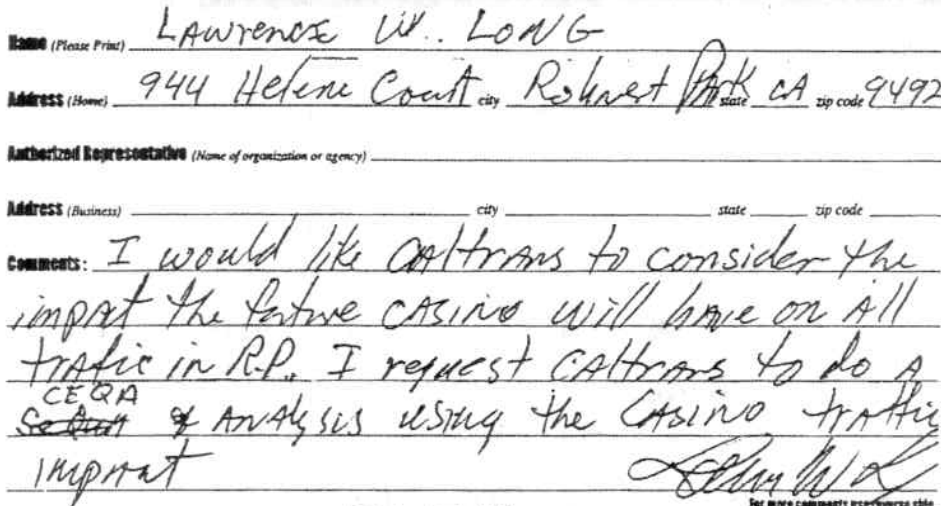 Name (Please Print) Lawrence W. Long
Address (Home) 944 Helene Court city Rohnert Park state CA zip code 9492
Authorized Representative (Name of organization or agency)
Address (Business) city state zip code
Comments: I would like Caltrans to consider the
impact the future casino will have on all
trafic in R.P. I request Caltrans to do a
CEQA
analysis using the casino traffic
impact
For more comments use reverse side